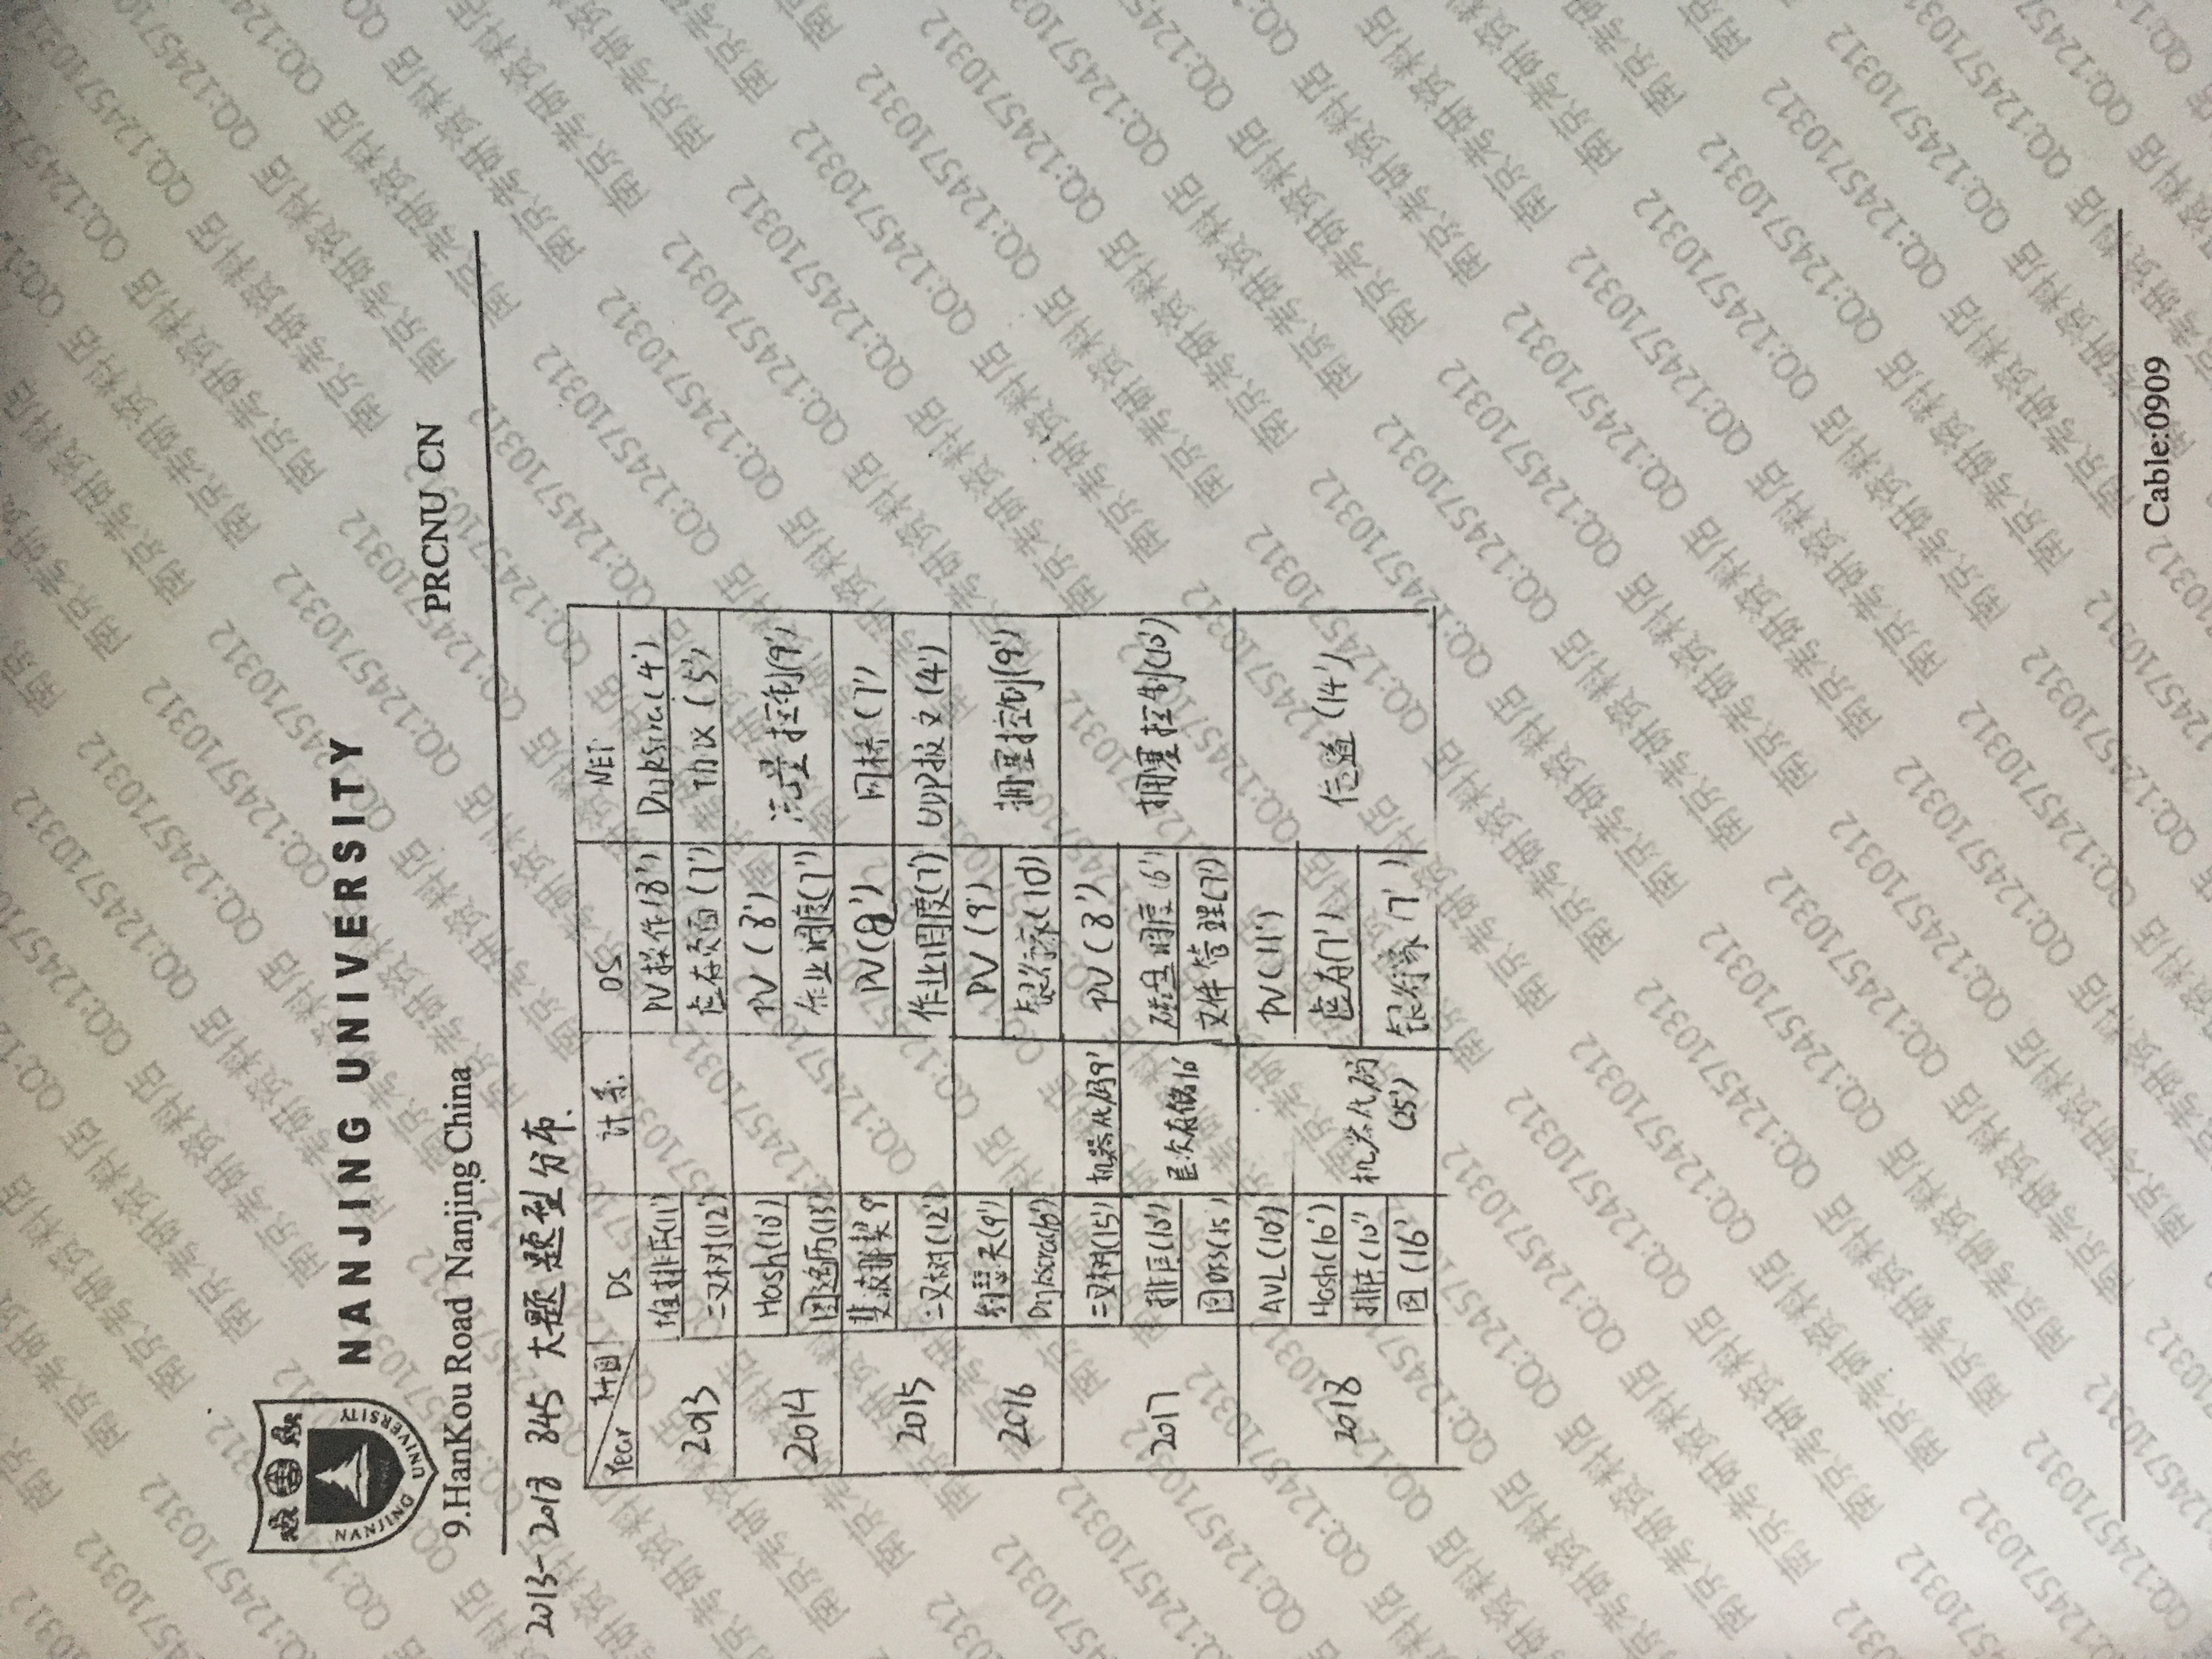 NANJING UNIVERSITY
NANJING UNIVERSITY
9.HanKou Road Nanjing China
PRCNU CN
2013-2018 845 大题题型分布.
Year 科目 DS 计系 OS NET
2013 堆排序(11') PV操作(8') Dijkstra(4')
二叉树(12') 虚存页面(7') 协议(5')
2014 Hash(10') PV(8') 流量控制(9')
图遍历(13' 作业调度(7')
2015 斐波那契9' PV(8') 网桥(7')
二叉树(12') 作业调度(7') UDP报文(4')
2016 约瑟夫(9') PV(9') 拥塞控制(9')
Dijkstra(10') 银行家(10')
2017 二叉树(15') 机器代码9' PV(8') 拥塞控制(10')
排序(10') 层次存储10' 磁盘调度(6')
图DFS(15') 文件管理(7')
2018 AVL(10') 机器代码(25') PV(11') 信道(14')
Hash(10') 虚存(7')
排序(10' 银行家(7')
图(16'
Cable:0909
南京考研资料店 QQ:1245710312